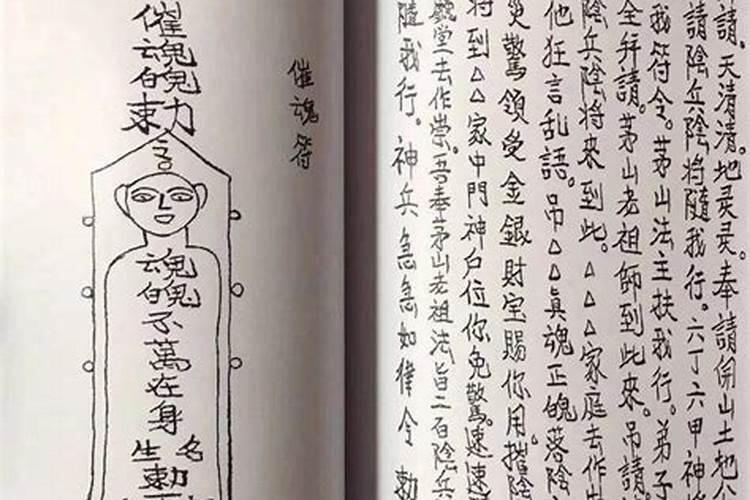 請。天清清。地灵灵。奉請開山土地公
請陰兵陰將隨我行。六丁六甲神將
我符令。茅山法主扶我行。弟子
全拜請。茅山老祖師到此來。吊請
陰兵陰將来到此。△△△家庭去作
他狂言乱語。吊△△真魂正魄落陰
災驚領受金銀財宝賜你用。摧陰
將到△△家中門神户位你免驚。速速
堂去作祟。吾奉茅山老祖法旨二百陰兵
隨我行。神兵急急如律令 勅
催魂符
催魂魄勅
魂魄不萬在身
名
勅
生